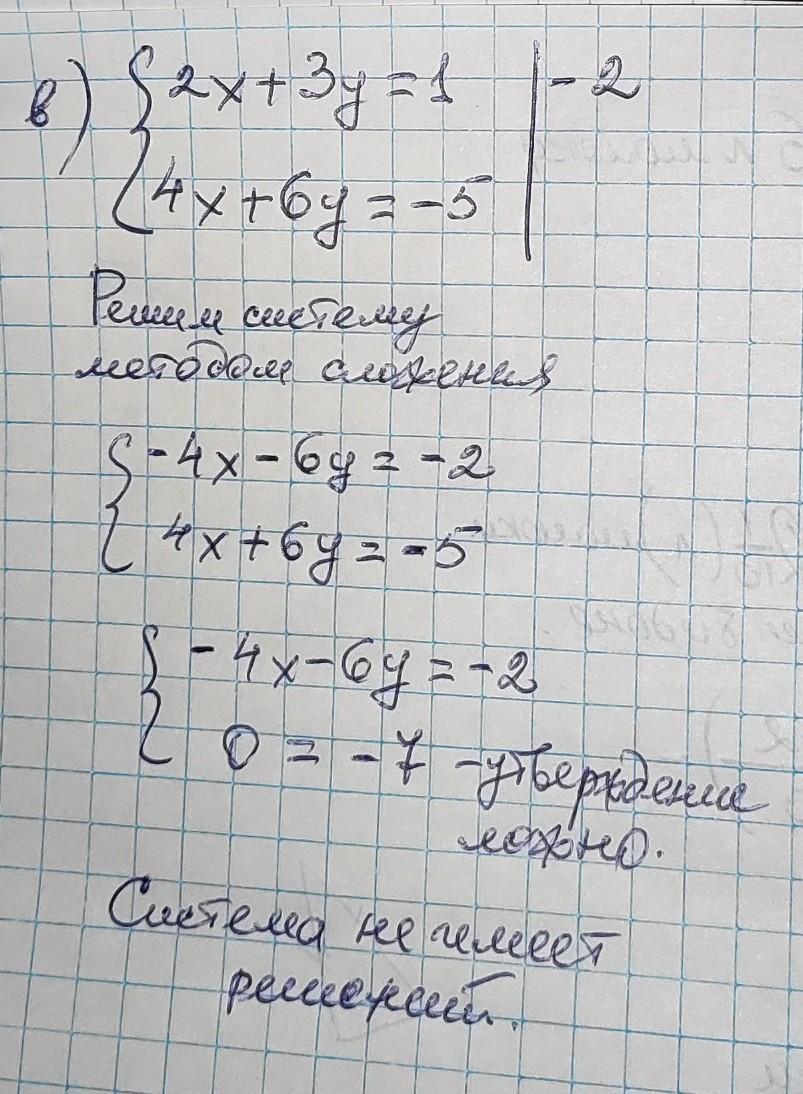 в) { 2x + 3y = 1 | - 2
4x + 6y = -5
Решим систему
методом сложения
{ -4x - 6y = -2
4x + 6y = -5
{ -4x - 6y = -2
0 = -7 - утверждение
ложно.
Система не имеет
решений.